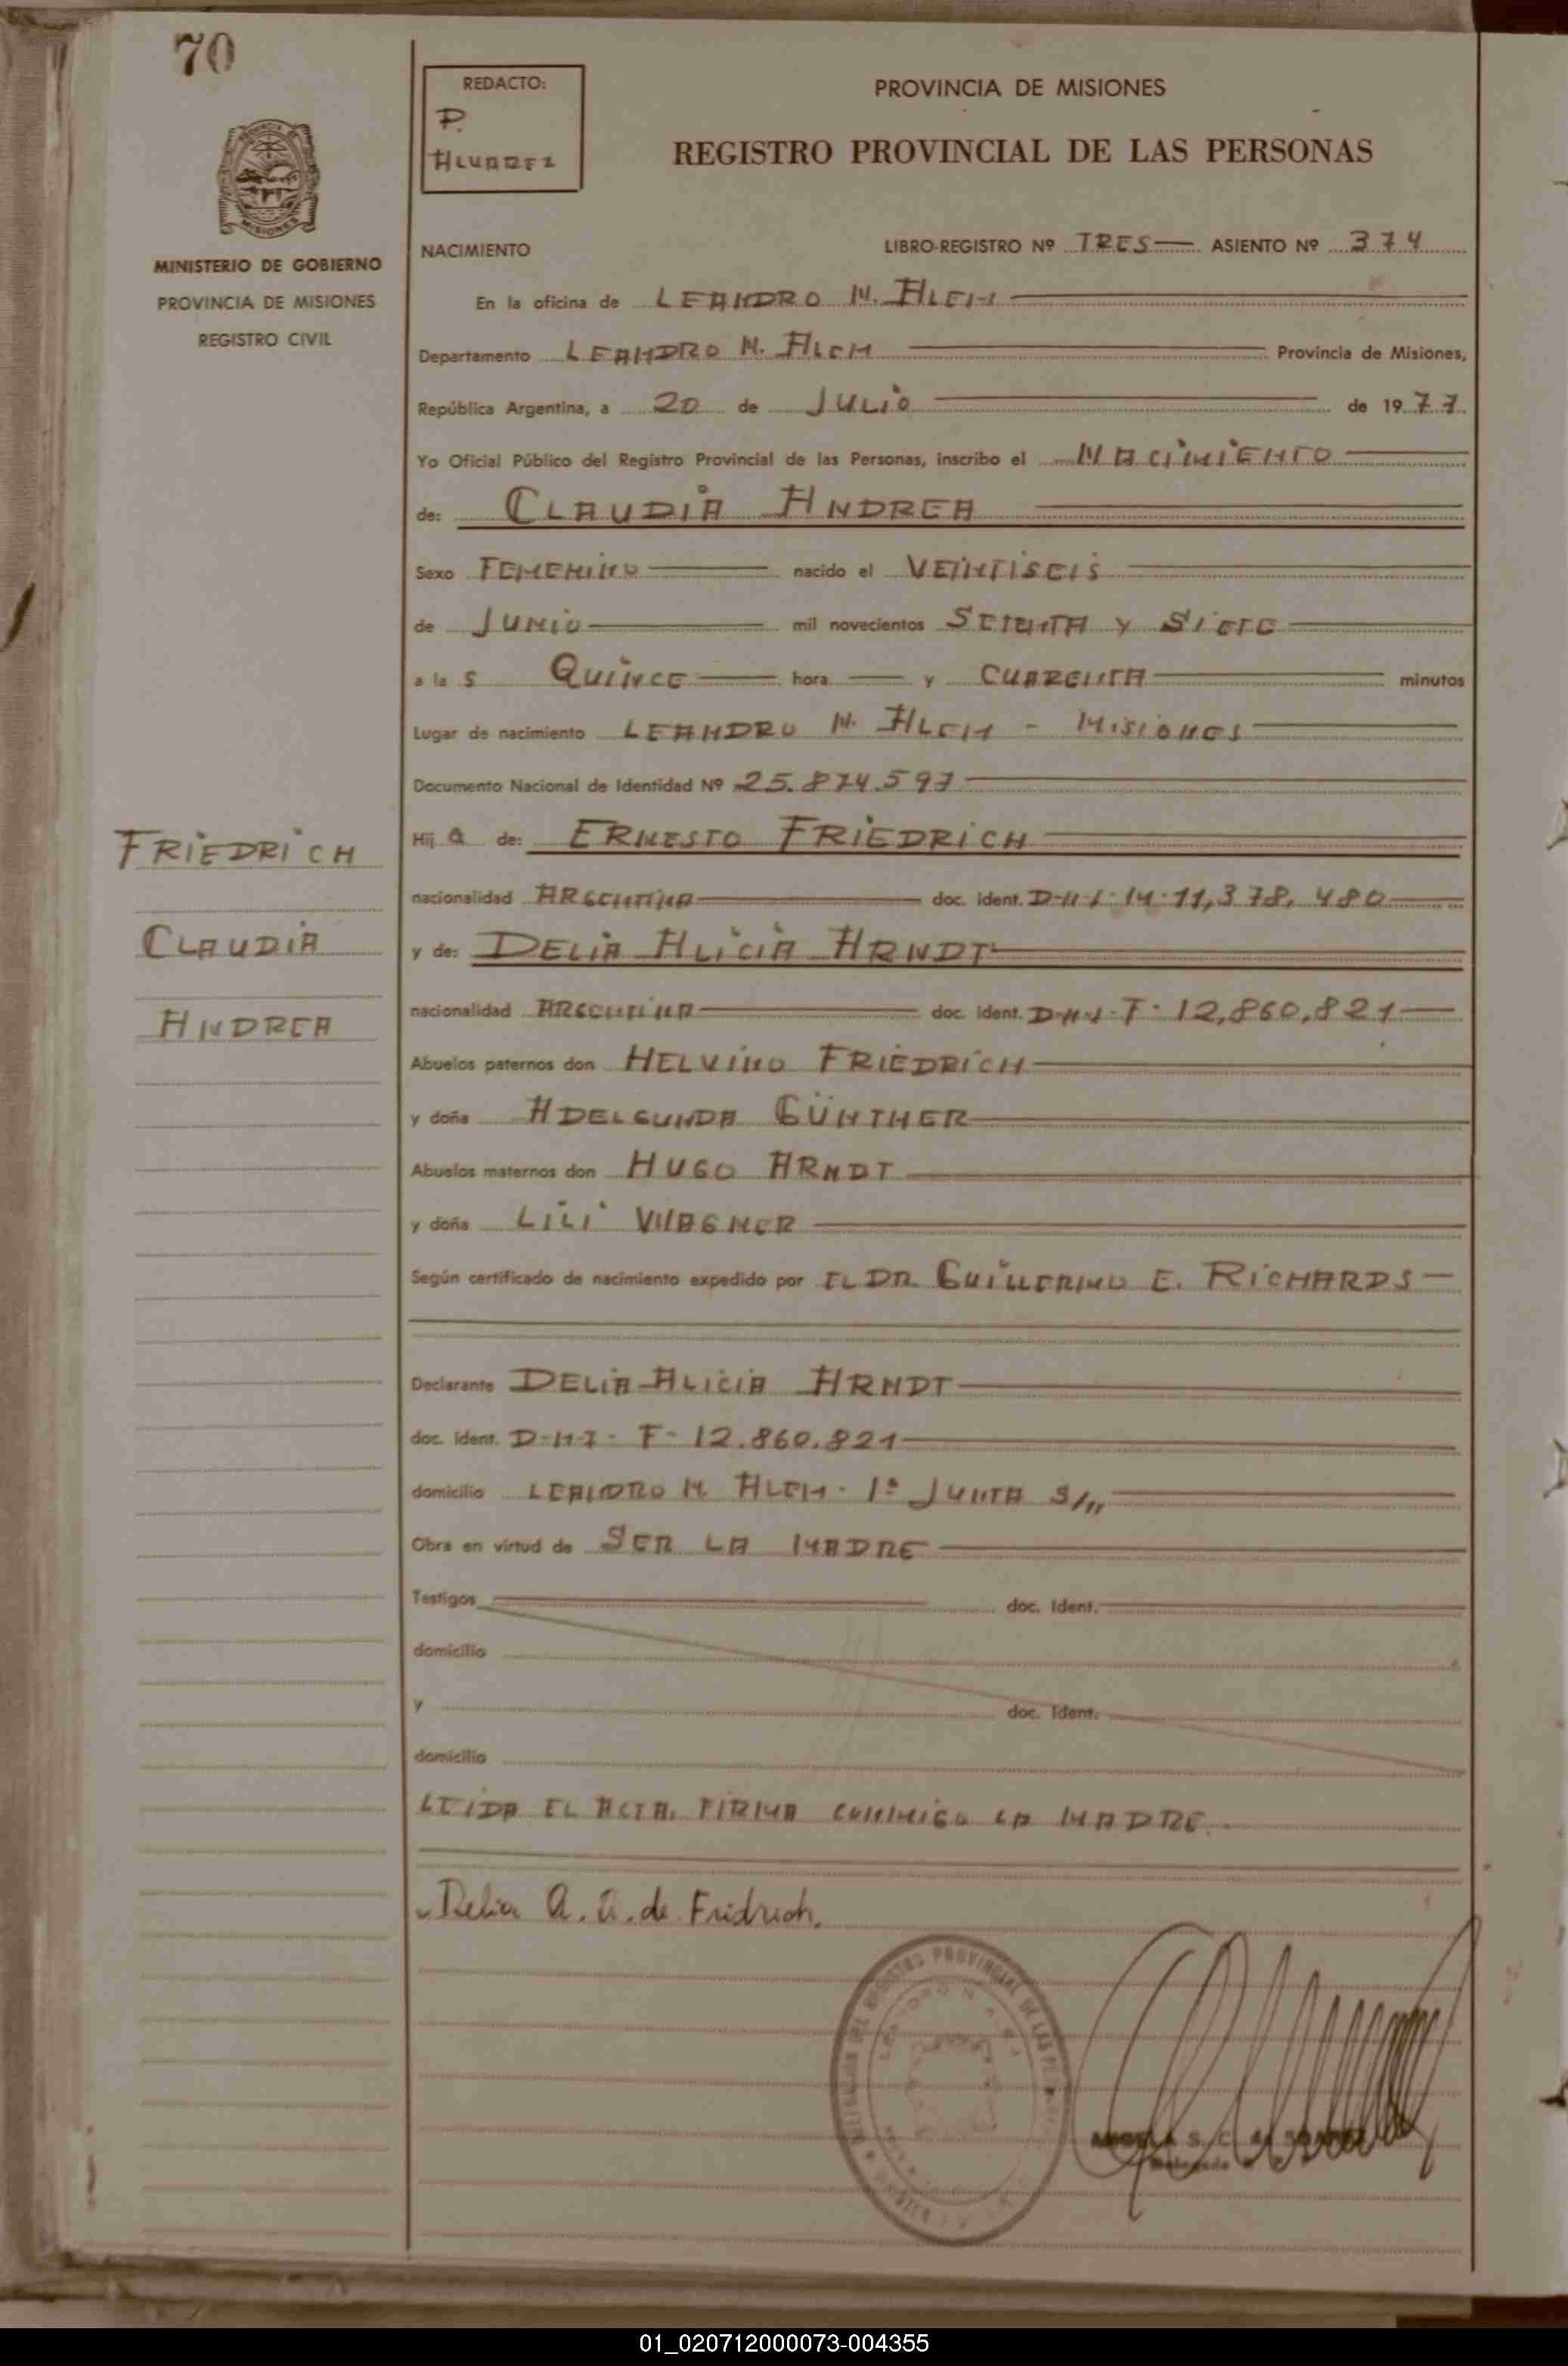 70
REDACTO:
P.
ALVAREZ
PROVINCIA DE MISIONES
REGISTRO PROVINCIAL DE LAS PERSONAS
MISIONES
MINISTERIO DE GOBIERNO
PROVINCIA DE MISIONES
REGISTRO CIVIL
NACIMIENTO LIBRO-REGISTRO Nº TRES ASIENTO Nº 374
En la oficina de LEANDRO N. ALEM
Departamento LEANDRO N. ALEM Provincia de Misiones,
República Argentina, a 20 de JULIO de 1977
Yo Oficial Público del Registro Provincial de las Personas, inscribo el NACIMIENTO
de: CLAUDIA ANDREA
Sexo FEMENINO nacido el VEINTISEIS
de JUNIO mil novecientos SETENTA Y SIETE
a las QUINCE hora y CUARENTA minutos
Lugar de nacimiento LEANDRO N. ALEM - MISIONES
Documento Nacional de Identidad Nº 25.874.597
Hija de: ERNESTO FRIEDRICH
nacionalidad ARGENTINA doc. ident. D-N-I-M-11,378,480
y de: DELIA ALICIA ARNDT
nacionalidad ARGENTINA doc. ident. D-N-I-F-12,860,821
FRIEDRICH
CLAUDIA
ANDREA
Abuelos paternos don HELVINO FRIEDRICH
y doña ADELGUNDA GÜNTHER
Abuelos maternos don HUGO ARNDT
y doña LILI WAGNER
Según certificado de nacimiento expedido por EL DR. GUILLERMO E. RICHARDS
Declarante DELIA ALICIA ARNDT
doc. ident. D-N-I- F- 12.860.821
domicilio LEANDRO N. ALEM - 1ª JUNTA S/n
Obra en virtud de SER LA MADRE
Testigos doc. ident.
domicilio
y doc. ident.
domicilio
LEIDA EL ACTA, FIRMA CONMIGO LA MADRE.
Delia A. A. de Fridrich.
DELEGACION DEL REGISTRO PROVINCIAL DE LAS
LEANDRO N. ALEM
01_020712000073-004355